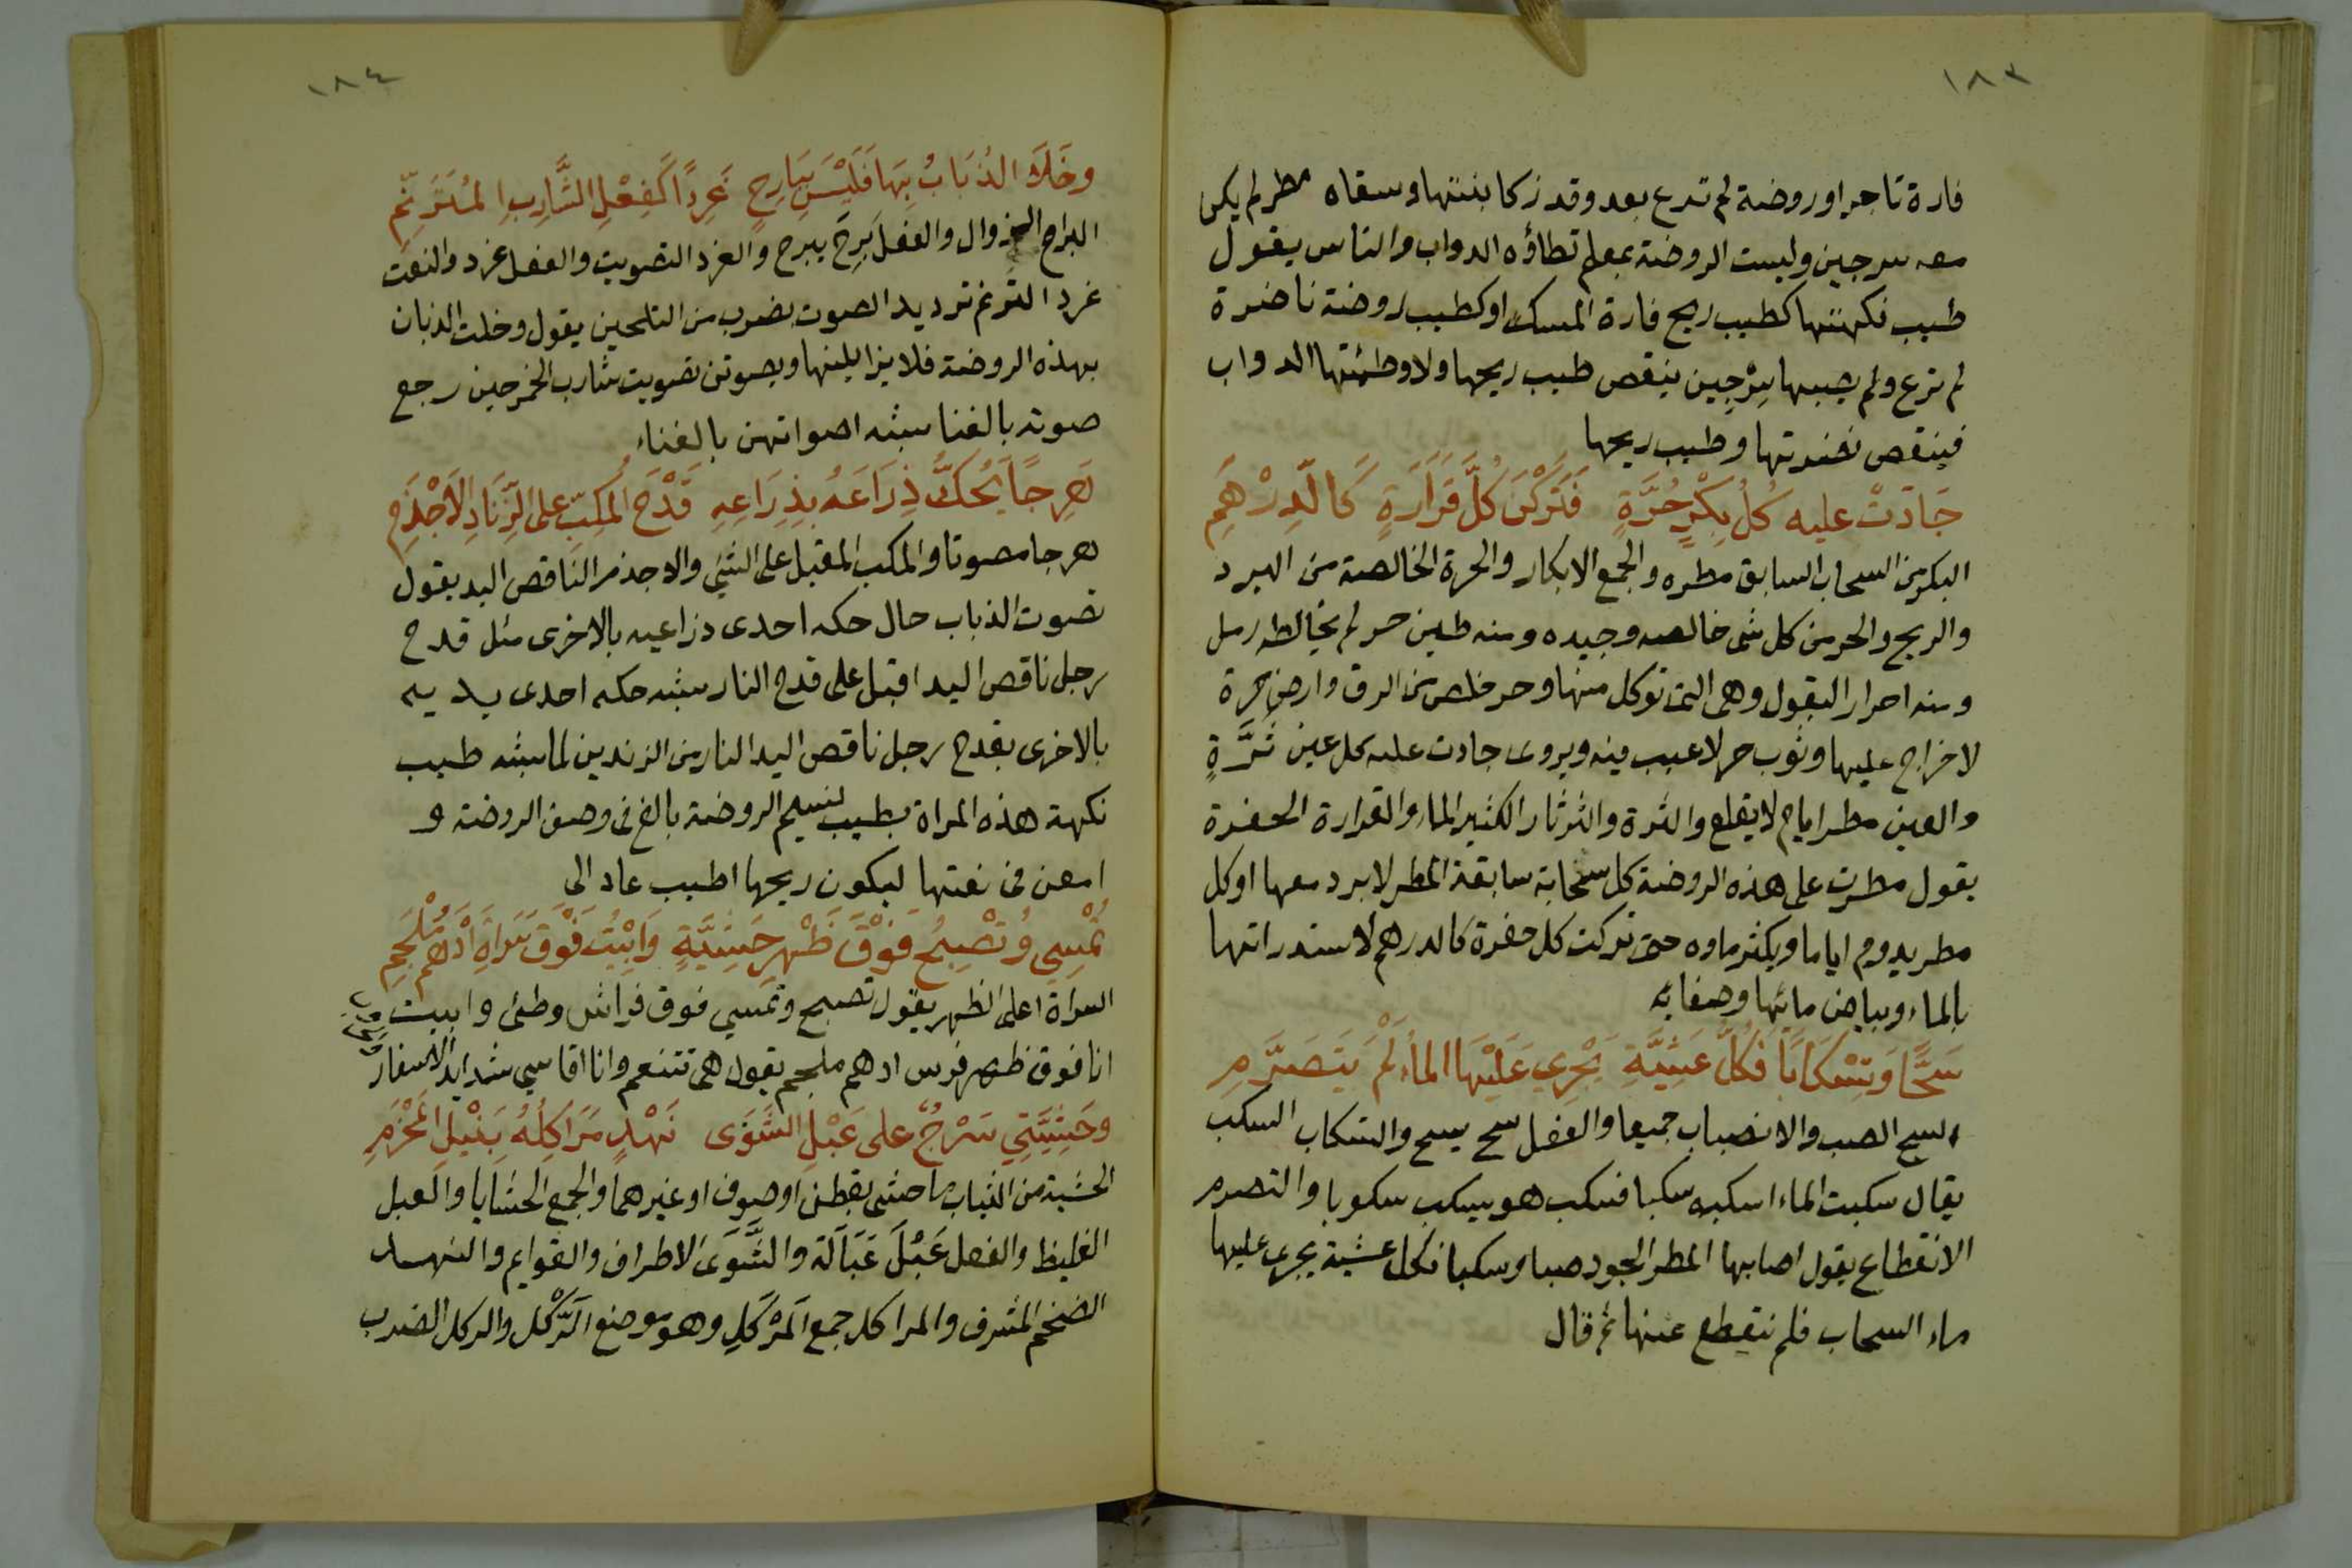 ١٨٣
فارة تاجر او روضة لم ترع بعد وقد زكا بنتها وسقاه مطر لم يكن
معه سرجين وليست الروضة بمعلم تطاؤه الدواب والناس يقول
طيب نكهتها كطيب ريح فارة المسك او كطيب روضة ناضرة
لم ترع ولم يصيبها سِرْجِين ينقص طيب ريحها ولا وطئتها الدواب
فينقص نضرتها وطيب ريحها
جَادَتْ عليه كُلُ بِكْرٍ حُرَّةٍ فَتَرَكْنَ كُلَّ قَرَارَةٍ كَالدِرْهَمِ
البكر من السحاب السابق مطره والجمع الابكار والحرة الخالصة من البرد
والريح والحر من كل شى خالصه وجيده ومنه طين حر لم يخالطه رمل
ومنه احرار البقول وهى التى توكل منها وحر خلص من الرق وارض حرة
لا خراج عليها وثوب حر لا عيب فيه ويروى جادت عليه كل عين ثَرَّةٍ
والعين مطر ايام لا يقلع والثرة والثرثار الكثير الماء والقرارة الحفرة
يقول مطرت على هذه الروضة كل سحابة سابقة المطر لا برد معها او كل
مطر يدوم اياما ويكثر ماوه حتى تركت كل حفرة كالدرهم لاستدراتها
بالماء وبياض مائها وصفائه
سَحًّا وَتِسْكَابًا فَكُلَّ عَشِيَّةٍ يَجْرِي عَلَيْهَا الماءُ لَمْ يَتَصَرَّمِ
السح الصب والانصباب جميعا والفعل سح يسح والتسكاب السكب
يقال سكبت الماء اسكبه سكبا فسكب هو يسكب سكوبا والتصرم
الانقطاع يقول اصابها المطر الجود صبا وسكبا فكل عشية يجرى عليها
ماء السحاب فلم ينقطع عنها ثم قال
١٨٤
وخَلَا الذُبَابُ بِهَا فَلَيْسَ بِبَارِحٍ غَرِدًا كَفِعْلِ الشَّارِبِ المُتَرَنِّمِ
البراح الزوال والفعل بَرِحَ يبرح والغرد التصويت والفعل غرد والنعت
غرد الترنم ترديد الصوت بضرب من التلحين يقول وخلت الذبان
بهذه الروضة فلا يزايلنها ويصوتن تصويت شارب الخمر حين رجع
صوته بالغنا شبه اصواتهن بالغناء
هَرِجًا يَحُكُّ ذِرَاعَهُ بِذِرَاعِهِ قَدْحَ المُكِبِّ على الزِّنَادِ الاَجْذَمِ
هرجا مصوتا والمكب المقبل على الشئ والاجذم الناقص اليد يقول
تصوت الذباب حال حكه احدى ذراعيه بالاخرى مثل قدح
رجل ناقص اليد اقبل على قدح النار شبه حكه احدى يديه
بالاخرى بقدح رجل ناقص اليد النار من الزندين لما شبه طيب
نكهة هذه المراة بطيب نسيم الروضة بالغ فى وصف الروضة و
امعن فى نعتها ليكون ريحها اطيب عاد الى
تُمْسِي وُتَصْبِحُ فَوْقَ ظَهْرِ حَشِيَّةٍ وَاَبِيتُ فَوْقَ سَرَاةِ اَدْهَمَ مُلْجَمِ
السراة اعلى الظهر يقول تصبح وتمسي فوق فراش وطئ وابيت
انا فوق ظهر فرس ادهم ملجم يقول هى تتنعم وانا اقاسي شدايد الاسفار
وحَشِيَّتِي سَرْجٌ على عَبْلِ الشَوَى نَهْدٍ مَرَاكِلُهُ نَبِيْلِ المَحْزَمِ
الحشية من الثياب ما حشى بقطن او صوف او غيرهما والجمع الحشايا والعبل
الغليظ والفعل عَبْلَ عَبَالَة والشَّوَى الاطراف والقوايم والنهد
الضخم المشرف والمراكل جمع المَرْكَلِ وهو موضع الرَّكْل والركل الضرب